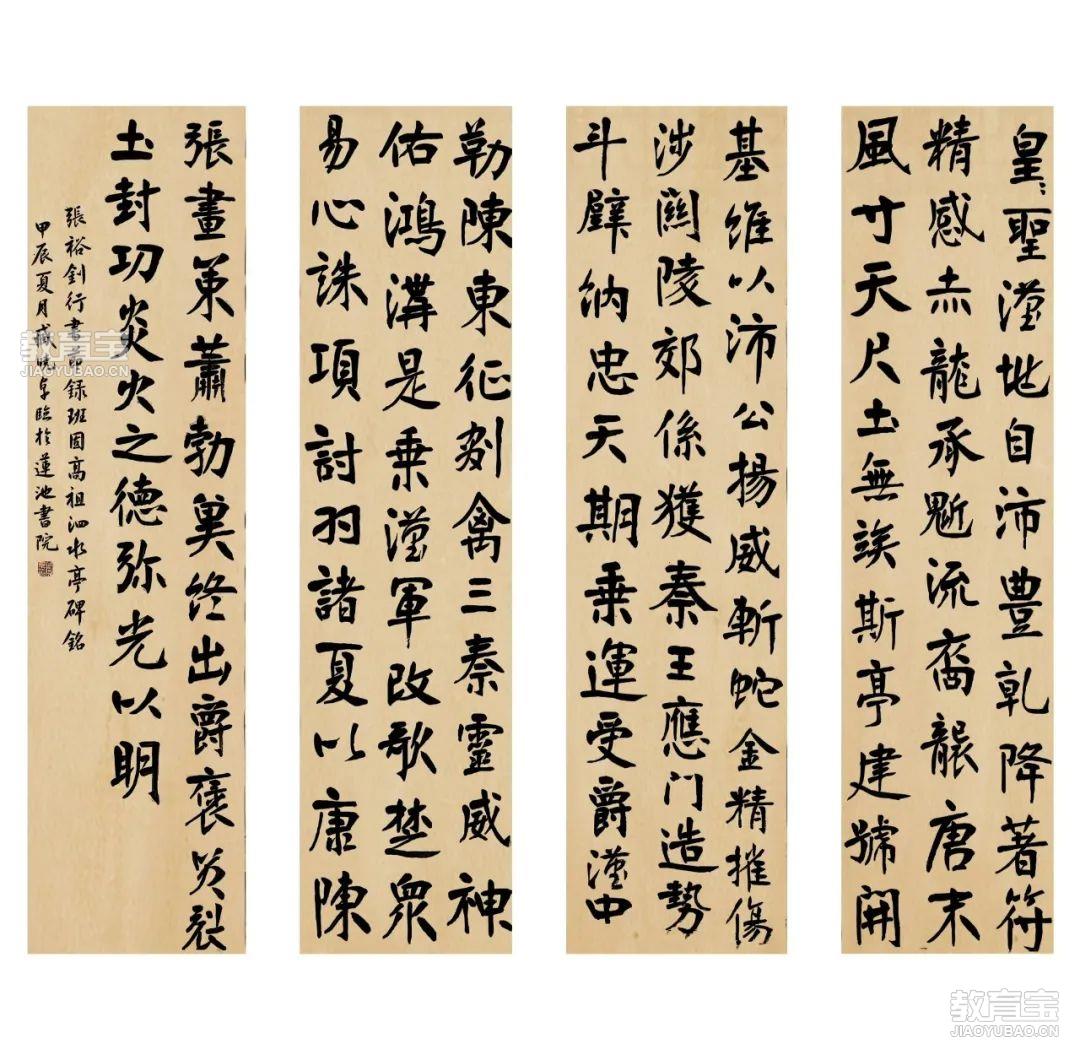 皇〻聖漢地自沛豐乾降著符
精感赤龍承魁流裔襲唐末
風寸天尺土無竢斯亭建號開
基維以沛公揚威斬蛇金精摧傷
涉關陵郊係獲秦王應門造勢
斗壁納忠天期乘運受爵漢中
勒陳東征剟禽三秦靈威神
佑鴻溝是乘漢軍改歌楚眾
易心誅項討羽諸夏以康陳
張畫策蕭勃翼終出爵褒賢裂
土封功炎火之德弥光以明
張裕釗行書節録班固高祖泗水亭碑銘
甲辰夏月臧曉卓臨於蓮池書院
教育宝
JIAOYUBAO.CN
教育宝
JIAOYUBAO.CN